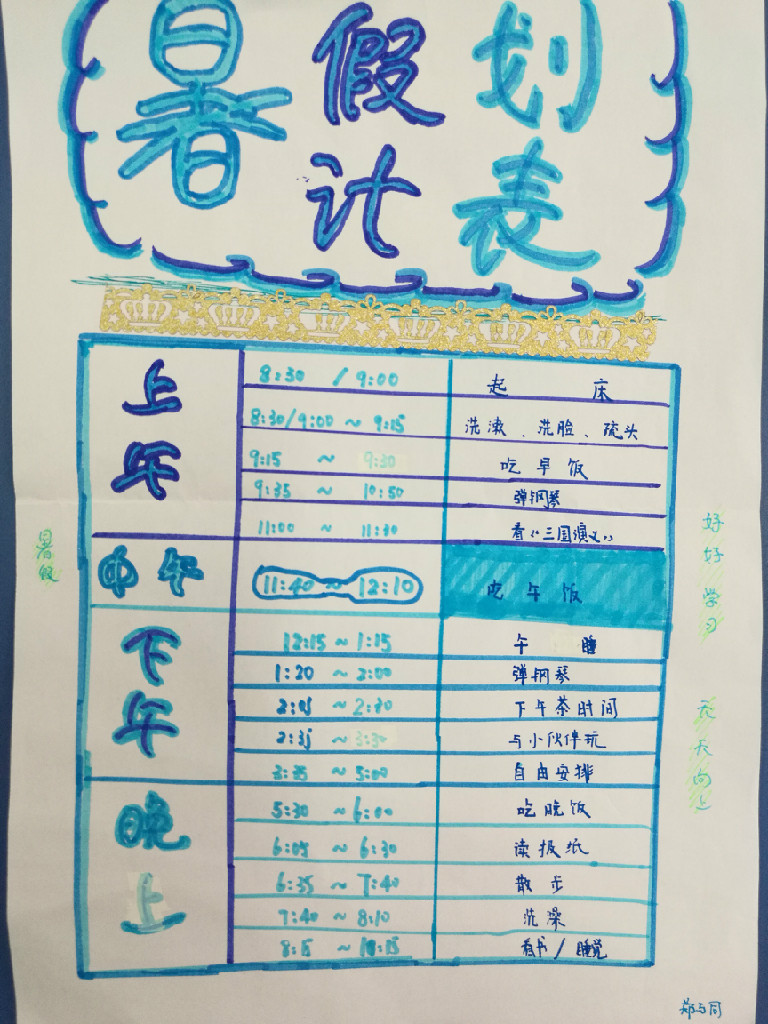 暑假计划表
上午
8:30 / 9:00 起床
8:30/9:00 ~ 9:15 洗漱、洗脸、梳头
9:15 ~ 9:30 吃早饭
9:35 ~ 10:50 弹钢琴
11:00 ~ 11:30 看《三国演义》
中午
11:40 ~ 12:10 吃午饭
下午
12:15 ~ 1:15 午睡
1:20 ~ 2:00 弹钢琴
2:05 ~ 2:30 下午茶时间
2:35 ~ 3:30 与小伙伴玩
3:35 ~ 5:00 自由安排
晚上
5:30 ~ 6:00 吃晚饭
6:05 ~ 6:30 读报纸
6:35 ~ 7:40 散步
7:40 ~ 8:10 洗澡
8:15 ~ 10:15 看书/睡觉
暑假
好好学习 天天向上